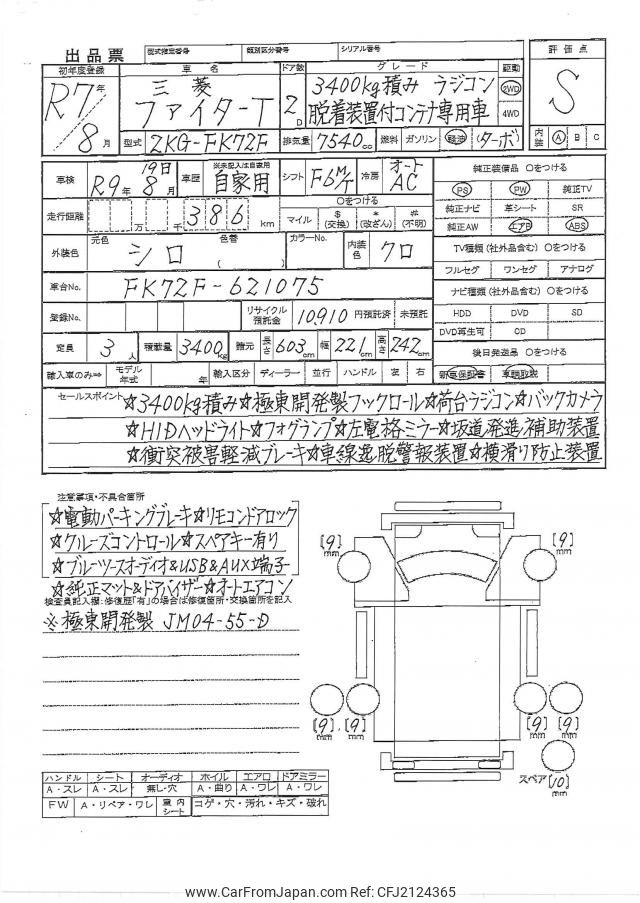 出品票 型式指定番号 類別区分番号 シリアル番号
初年度登録 車名 ドア数 グレード 駆動 評価点
R7年 8月 三菱 ファイターT 2D 3400kg積み ラジコン 脱着装置付コンテナ専用車 2WD 4WD S
型式 2KG-FK72F 排気量 7540cc 燃料 ガソリン 軽油 (ターボ) 内装 A B C
車検 R9年 8月 19日 車歴 ※未記入は自家用 自家用 シフト F6M/T 冷房 オートAC 純正装備品 ○をつける
PS PW 純正TV
走行距離 万 千 386 km ○をつける マイル $(交換) *(改ざん) #(不明) 純正ナビ 革シート SR
純正AW エアB ABS
外装色 元色 シロ 色替 ( ) カラーNo. 内装色 クロ TV種類(社外品含む) ○をつける
フルセグ ワンセグ アナログ
車台No. FK72F-621075 ナビ種類(社外品含む) ○をつける
登録No. リサイクル預託金 10,910 円預託済 未預託 HDD DVD SD
DVD再生可 CD
定員 3人 積載量 3400kg 諸元 長さ 603cm 幅 221cm 高さ 242cm 後日発送品 ○をつける
輸入車のみ⇒ モデル年式 年 輸入区分 ディーラー 並行 ハンドル 左 右 新車保証書 車輌取説
セールスポイント ☆3400kg積み☆極東開発製フックロール☆荷台ラジコン☆バックカメラ
☆HIDヘッドライト☆フォグランプ☆左電格ミラー☆坂道発進補助装置
☆衝突被害軽減ブレーキ☆車線逸脱警報装置☆横滑り防止装置
注意事項・不具合箇所
☆電動パーキングブレーキ☆リモコンドアロック
☆クルーズコントロール☆スペアキー有り
☆ブルーツースオーディオ&USB&AUX端子
☆純正マット&ドアバイザー☆オートエアコン
検査員記入欄:修復歴「有」の場合は修復箇所・交換箇所を記入
※極東開発製 JM04-55-D
[9]mm [9]mm
[9]mm [9]mm [9]mm [9]mm
スペア [10]mm
ハンドル シート オーディオ ホイル エアロ ドアミラー
A・スレ A・スレ 無し・穴 A・曲り A・ワレ A・ワレ
FW A・リペア・ワレ 室内シート コゲ・穴・汚れ・キズ・破れ
www.CarFromJapan.com Ref: CFJ2124365